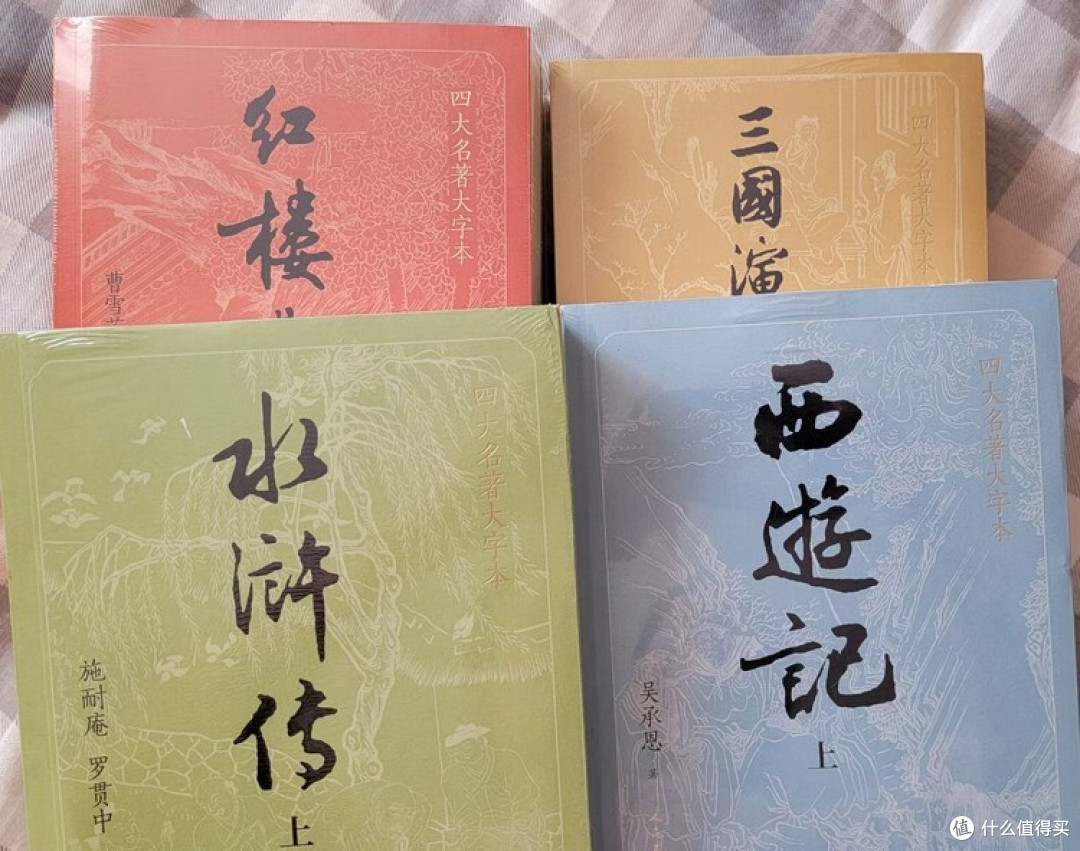 四大名著大字本
红楼
曹雪
四大名著大字本
三國演
四大名著大字本
水浒传
上
施耐庵 罗贯中
四大名著大字本
西遊記
上
吴承恩 著
人
值 什么值得买